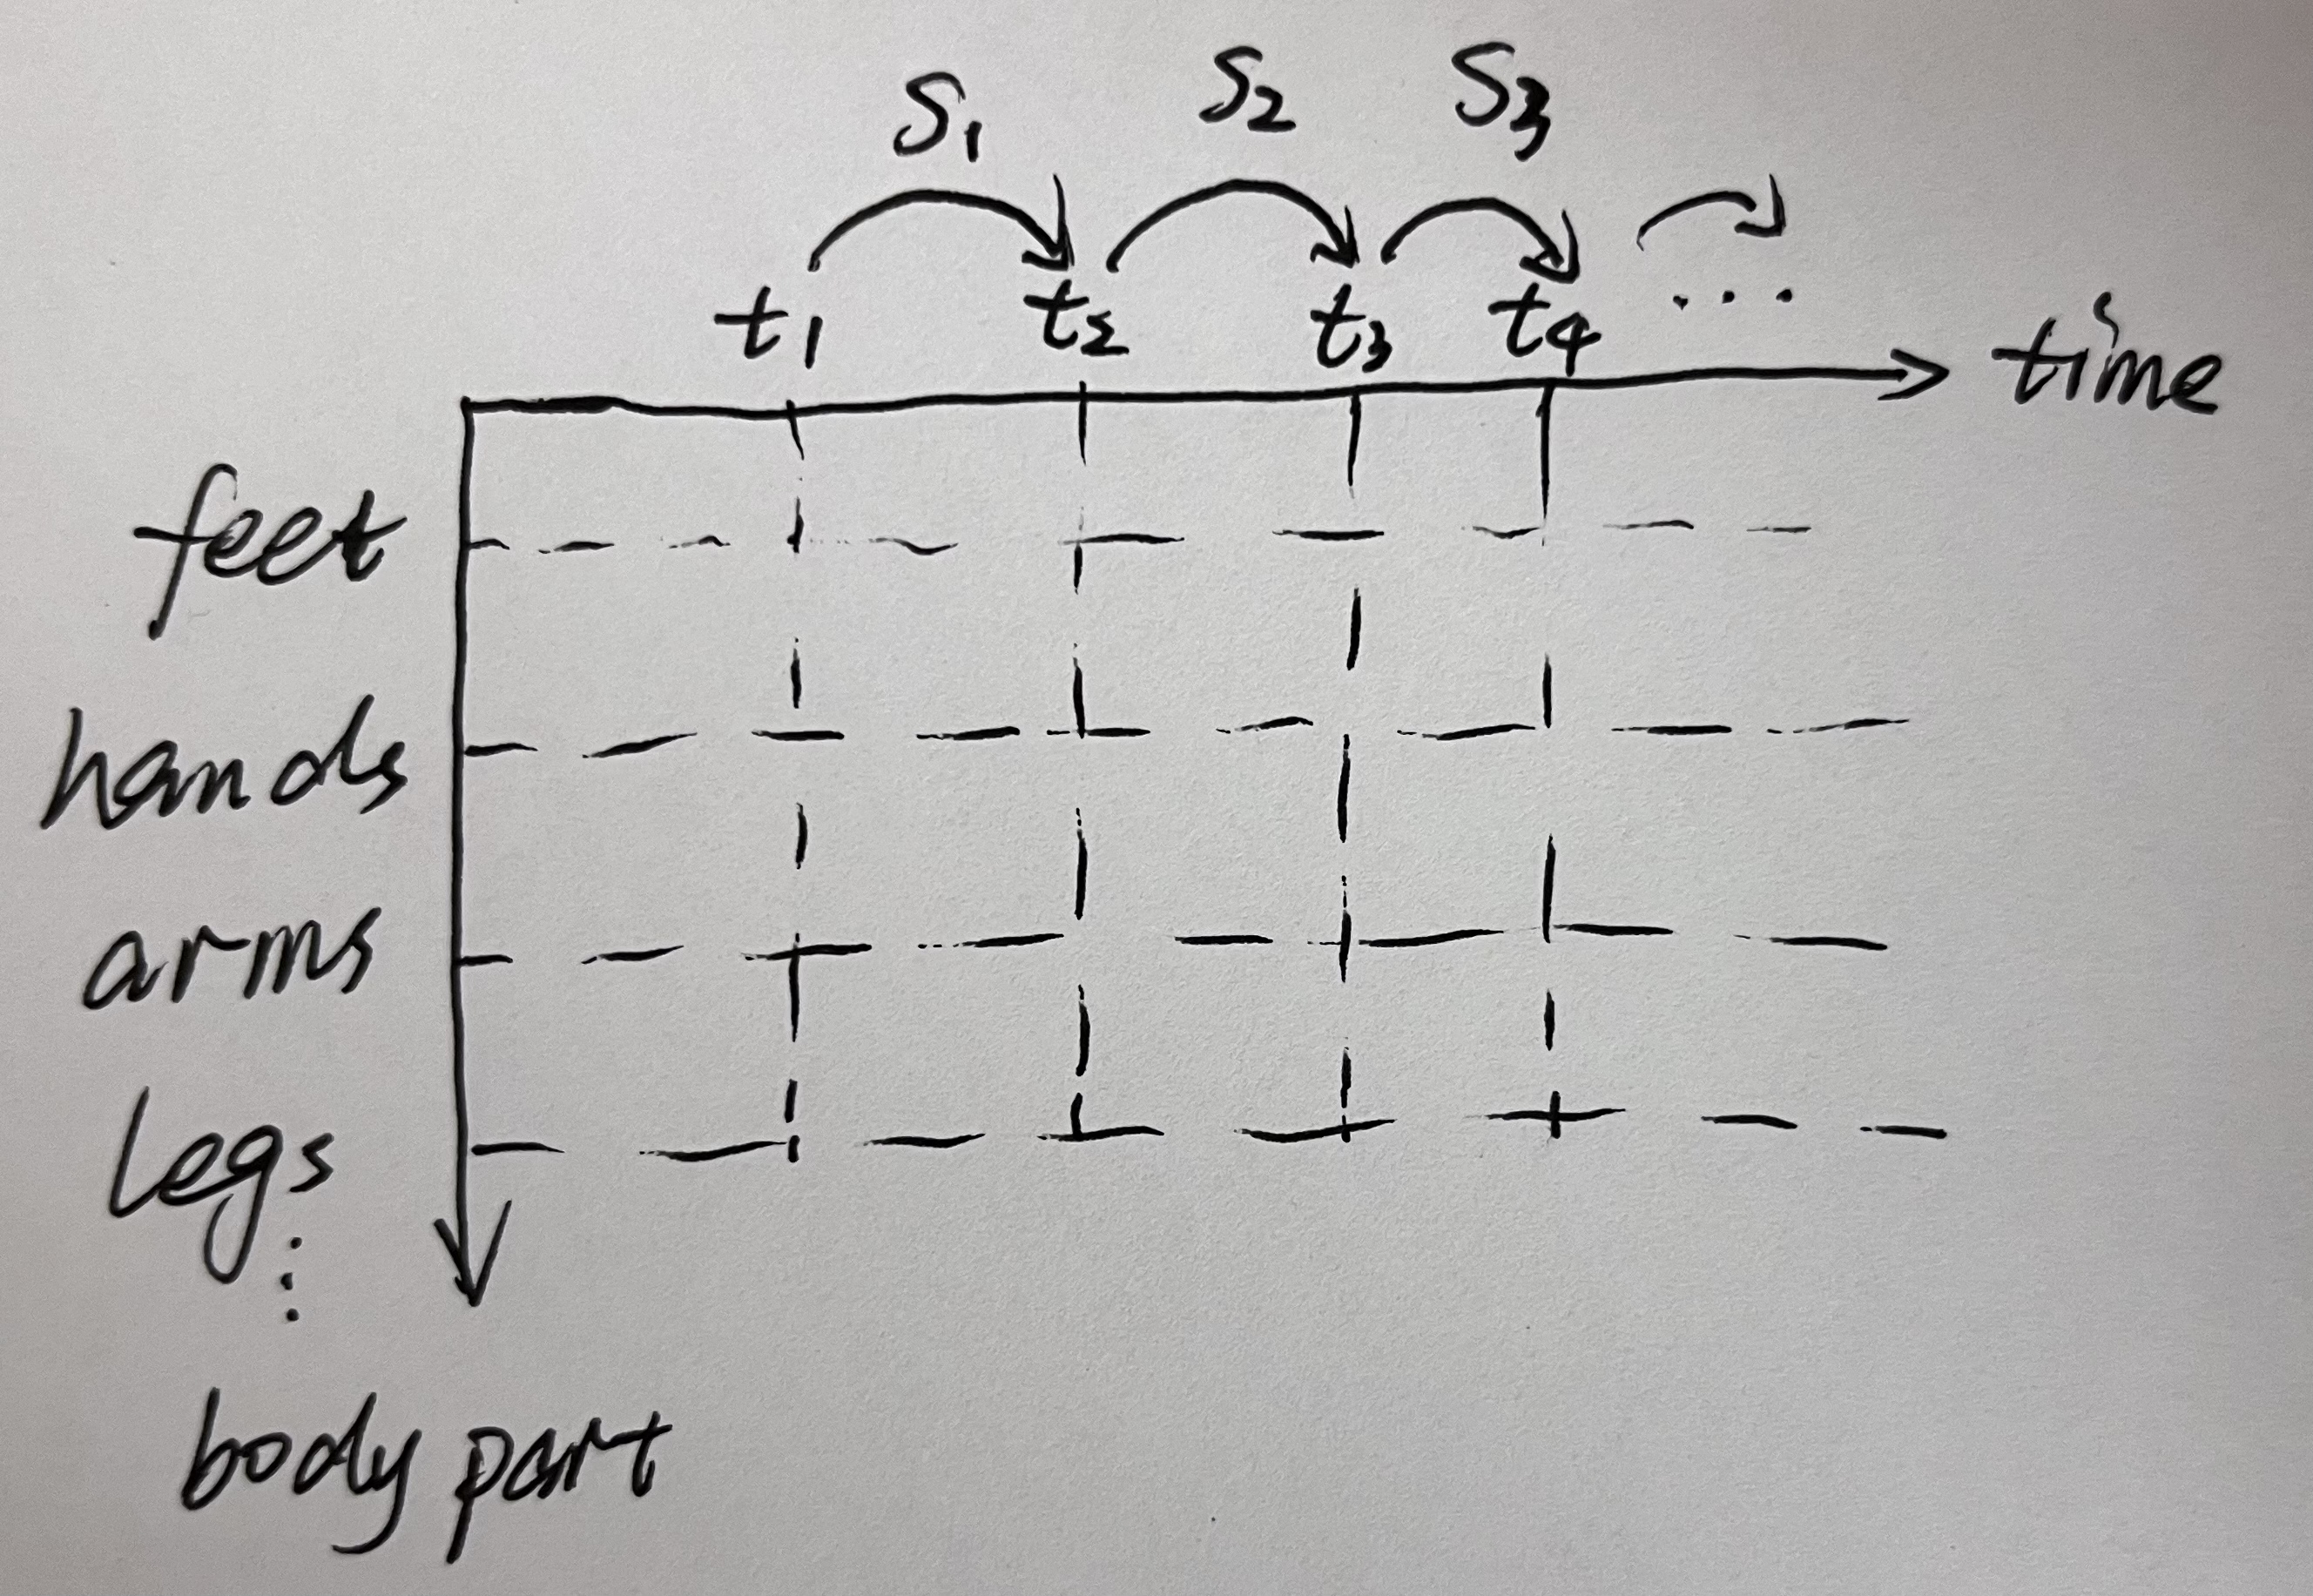 S1 S2 S3
t1 t2 t3 t4 ...
time
feet
hands
arms
legs
⋮
body part